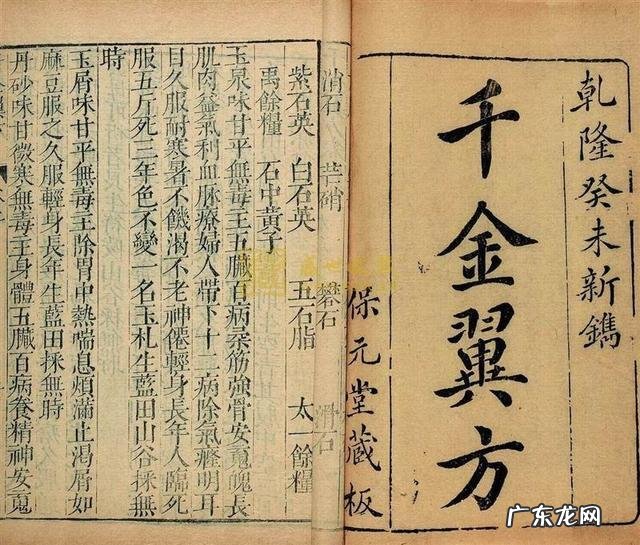 乾隆癸未新鐫
千金翼方
保元堂藏板
消石
芒硝
礬石
滑石
紫石英 白石英 五石脂 太一餘糧
禹餘糧 石中黃子
玉泉味甘平無毒主五臟百病柔筋強骨安䰟魄長
肌肉益氣利血脉療婦人帶下十二病除氣癃明耳
目久服耐寒暑不饑渴不老神僊輕身長年人臨死
服五斤死三年色不變一名玉札生藍田山谷採無
時
玉屑味甘平無毒主除胃中熱喘息煩滿止渴屑如
麻豆服之久服輕身長年生藍田採無時
丹砂味甘微寒無毒主身體五臟百病養精神安䰟
广东龙网